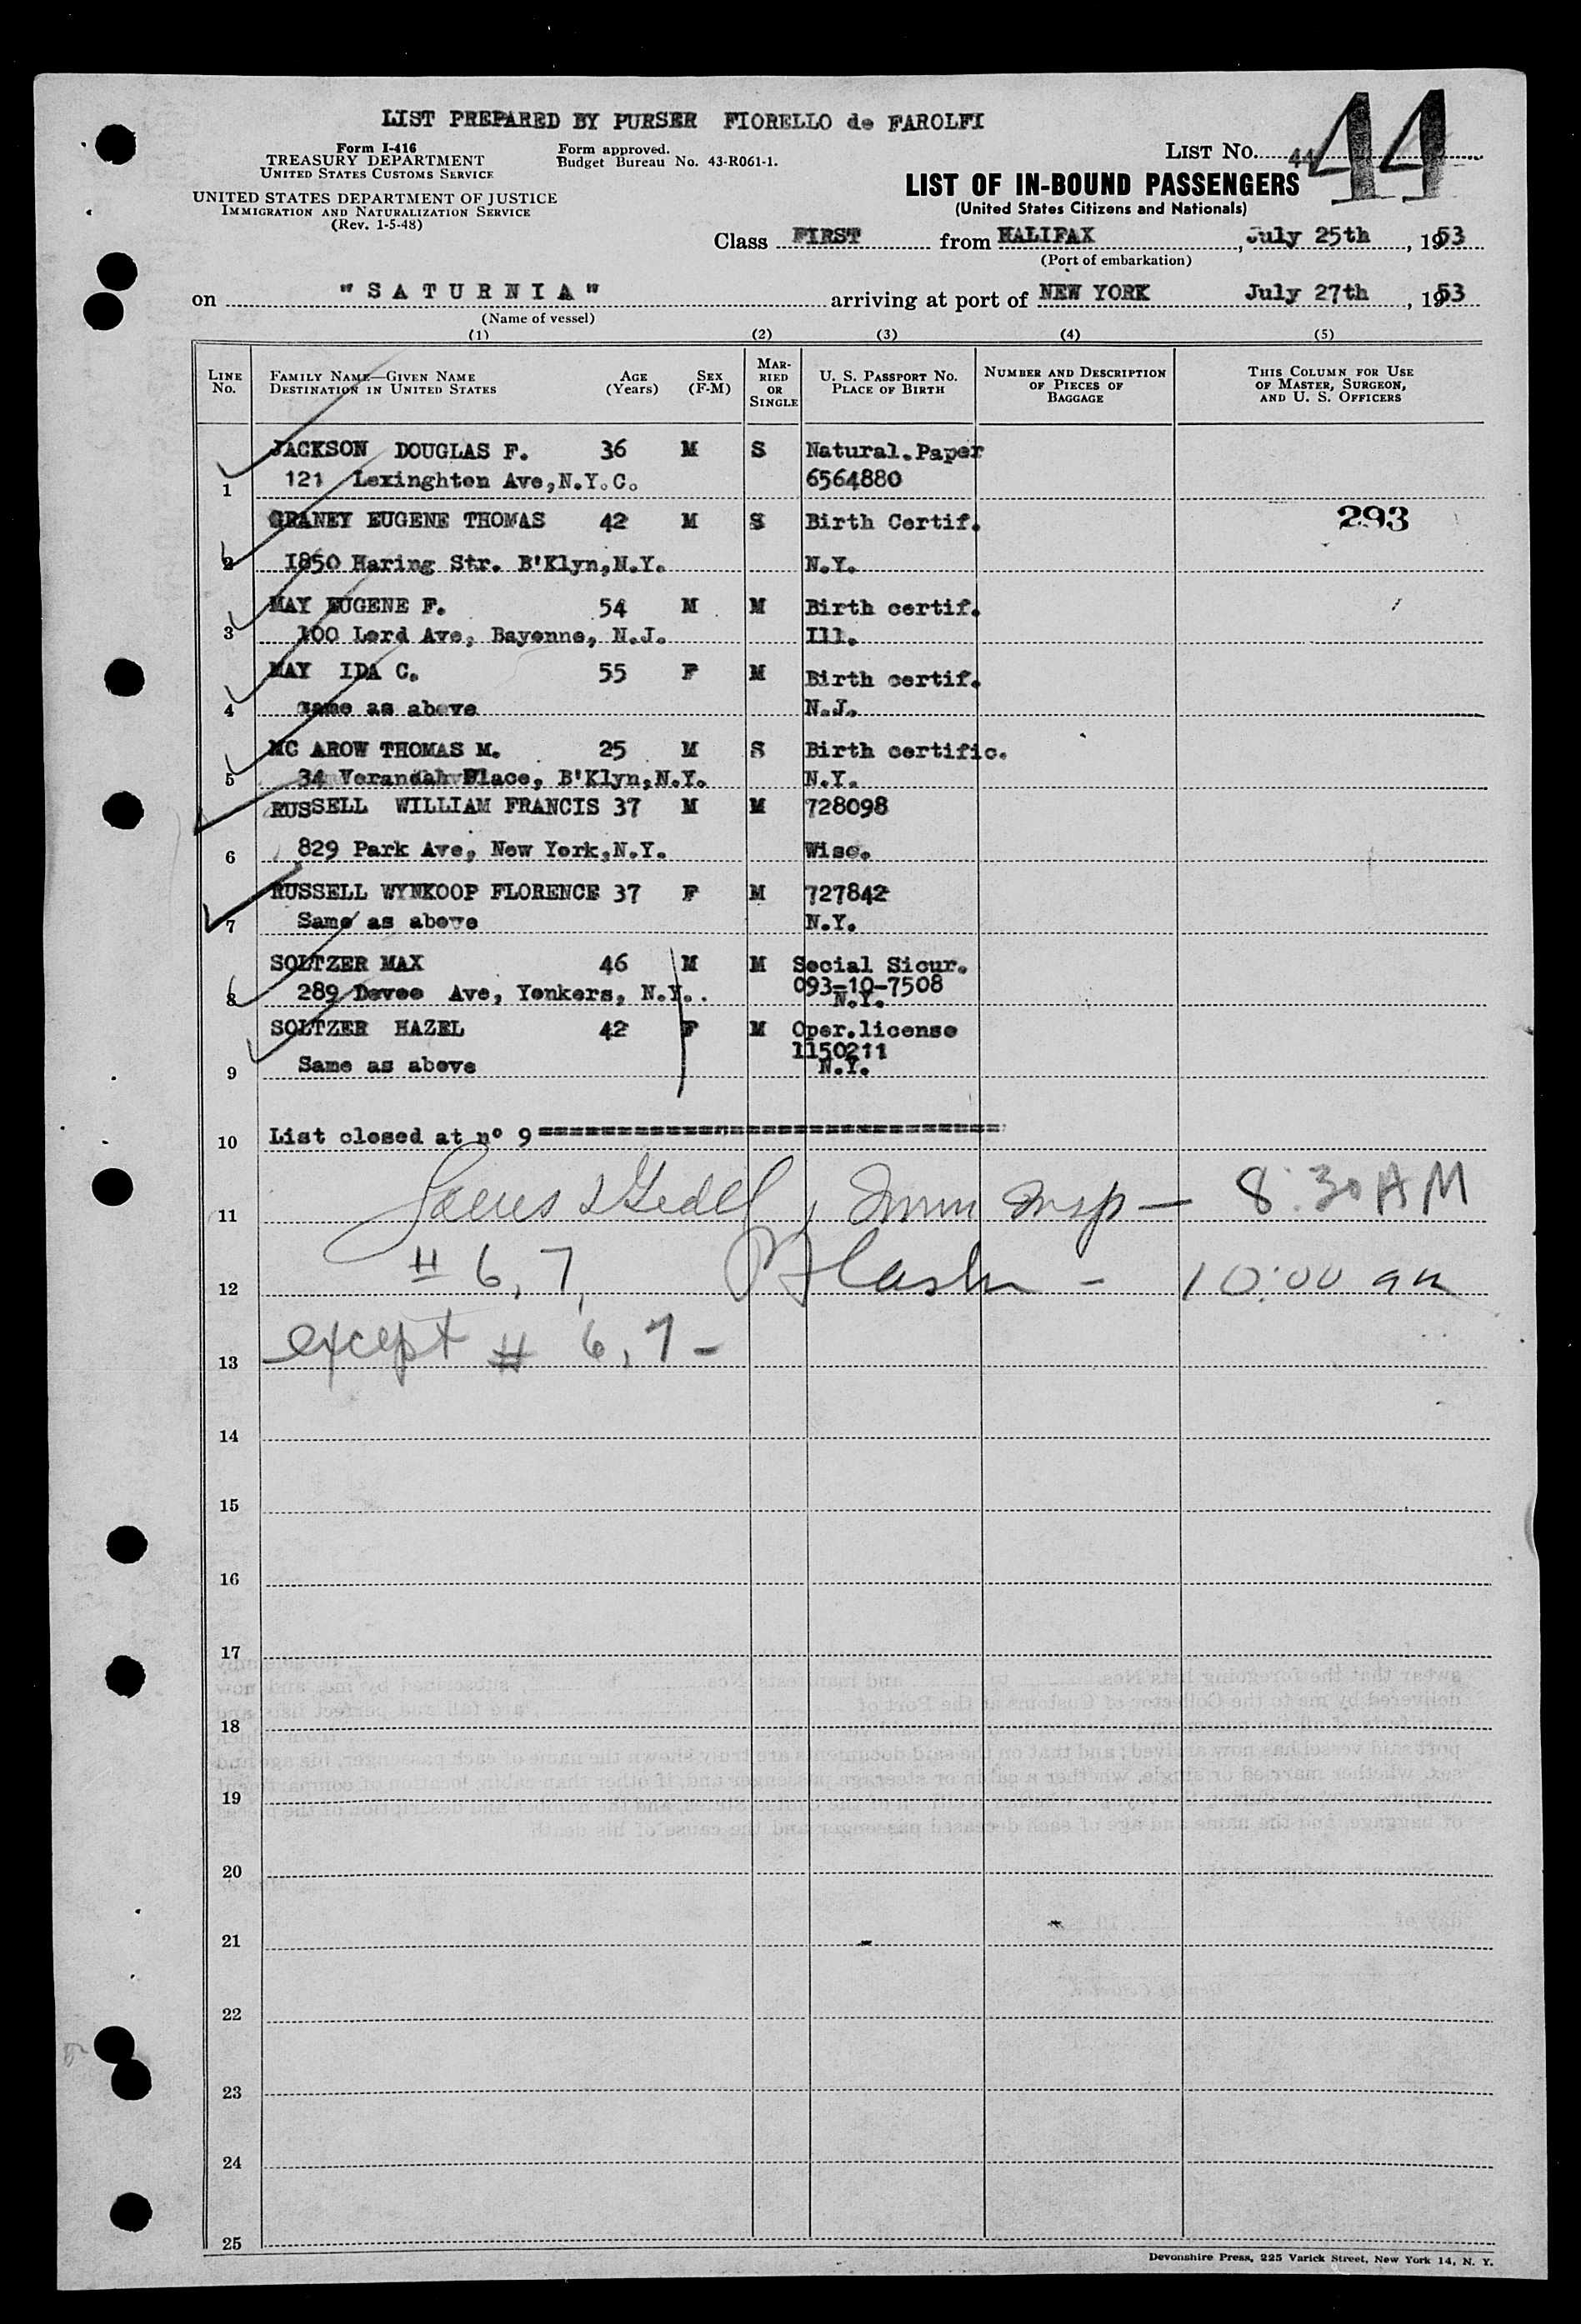 LIST PREPARED BY PURSER FIORELLO de FAROLFI
Form I-416
TREASURY DEPARTMENT
UNITED STATES CUSTOMS SERVICE
Form approved.
Budget Bureau No. 43-R061-1.
LIST No. 44
44
UNITED STATES DEPARTMENT OF JUSTICE
IMMIGRATION AND NATURALIZATION SERVICE
(Rev. 1-5-48)
LIST OF IN-BOUND PASSENGERS
(United States Citizens and Nationals)
Class FIRST from HALIFAX, July 25th, 1953
(Port of embarkation)
on "SATURNIA" arriving at port of NEW YORK July 27th, 1953
(Name of vessel)
(1) (2) (3) (4) (5)
LINE No. FAMILY NAME—GIVEN NAME DESTINATION IN UNITED STATES AGE (Years) SEX (F-M) MARRIED OR SINGLE U. S. PASSPORT No. PLACE OF BIRTH NUMBER AND DESCRIPTION OF PIECES OF BAGGAGE THIS COLUMN FOR USE OF MASTER, SURGEON, AND U. S. OFFICERS
JACKSON DOUGLAS F. 36 M S Natural.Paper
1 121 Lexinghton Ave,N.Y.C. 6564880
GRANEY EUGENE THOMAS 42 M S Birth Certif. 293
2 1850 Haring Str. B'Klyn,N.Y. N.Y.
MAY EUGENE F. 54 M M Birth certif.
3 100 Lord Ave, Bayonne, N.J. Ill.
MAY IDA C. 55 F M Birth certif.
4 same as above N.J.
MC AROW THOMAS M. 25 M S Birth certific.
5 34 Verandah Place, B'Klyn,N.Y. N.Y.
RUSSELL WILLIAM FRANCIS 37 M M 728098
6 829 Park Ave, New York,N.Y. Wisc.
RUSSELL WYNKOOP FLORENCE 37 F M 727842
7 Same as above N.Y.
SOLTZER MAX 46 M M Social Sicur.
093-10-7508
8 289 Devoe Ave, Yonkers, N.Y.. N.Y.
SOLTZER HAZEL 42 F M Oper.license
1150211
9 Same as above N.Y.
10 List closed at n° 9 ==============================
11 Imm Insp — 8:30 AM
12 # 6, 7, - 10:00 am
13 except # 6, 7 -
14
15
16
17
18
19
20
21
22
23
24
25
Devonshire Press, 225 Varick Street, New York 14, N. Y.